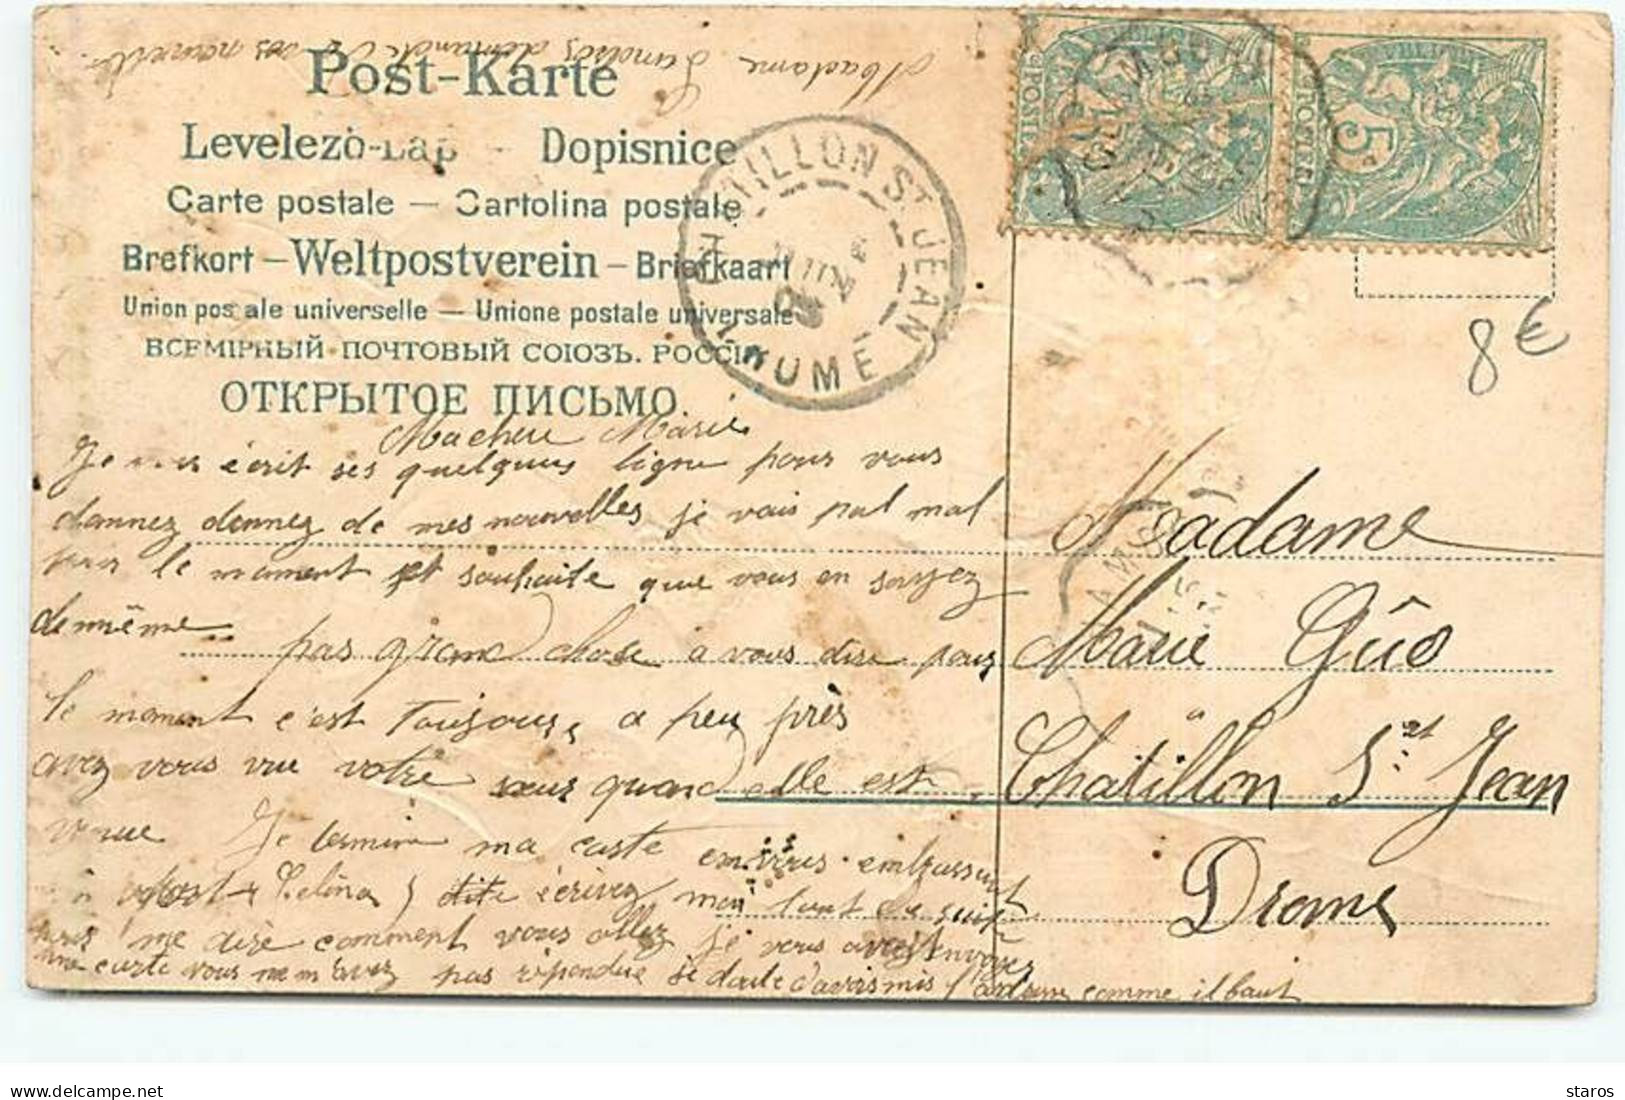 Madame
Landros demande de vos nouvelles
Post-Karte
Levelezö-Lap – Dopisnice
Carte postale – Cartolina postale
Brefkort – Weltpostverein – Briefkaart
Union postale universelle – Unione postale universale
ВСЕМІРНЫЙ ПОЧТОВЫЙ СОЮЗЪ. РОССІЯ
ОТКРЫТОЕ ПИСЬМО.
CHATILLON ST JEAN
DROME
POSTES
5
8€
Machere Marie
Je vous écrit ses quelques ligne pour vous
donnez donnez de mes nouvelles je vais pat mal
pour le moment et souhaite que vous en soryez
demmême pas grand chose a vous dire pour
le moment c'est Toujours a peu près
avez vous vue votre sœur quand elle est
venue Je termine ma carte en vous embrassent
Celina dite écrivez moi tout de suite
me dire comment vous allez je vous avait envoyez
une carte vous ne m'avez pas répondue je doute d'avoir mis l'adresse comme il faut
Madame
Marie Gûs
Chatillon St Jean
Drome
staros